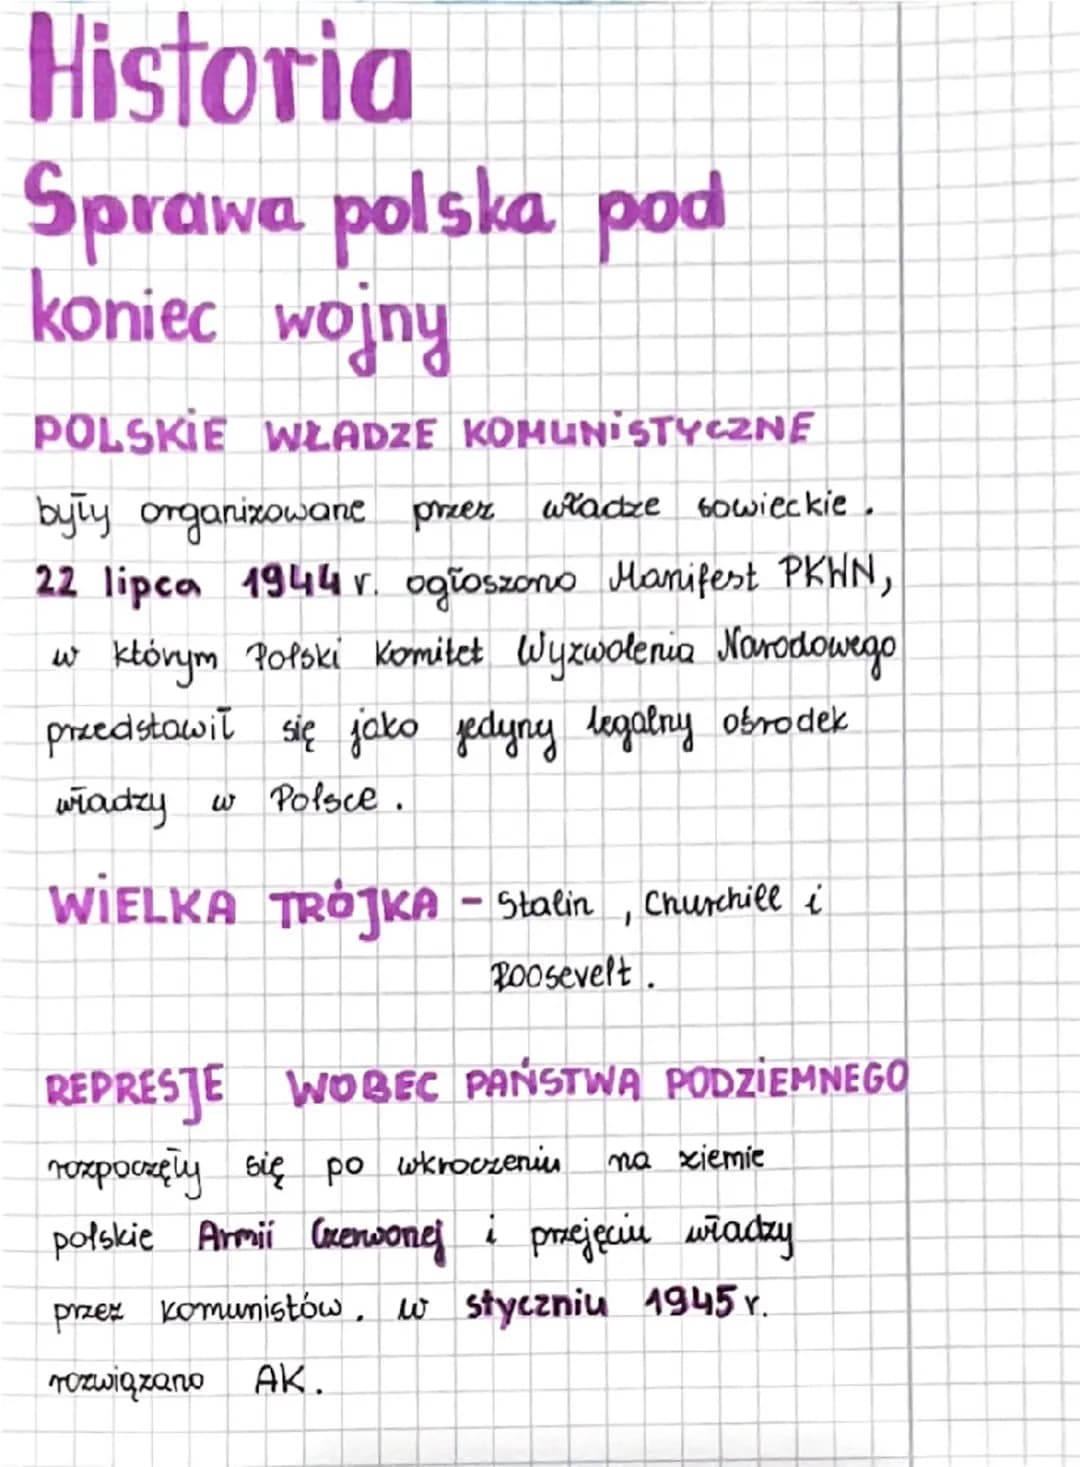 Historia
Sprawa polska pod
koniec wojny
POLSKIE WŁADZE KOMUNISTYCZNE
były organizowane przez władze sowieckie.
22 lipca 1944 r. ogłoszono Manifest PKWN,
w którym Polski Komitet Wyzwolenia Narodowego
przedstawił się jako jedyny legalny ośrodek
władzy w Polsce.
WIELKA TRÓJKA - Stalin, Churchill i
Roosevelt.
REPRESJE WOBEC PAŃSTWA PODZIEMNEGO
rozpoczęły się po wkroczeniu na ziemie
polskie Armii Czerwonej i przejęciu władzy
przez komunistów. w styczniu 1945 r.
rozwiązano AK.